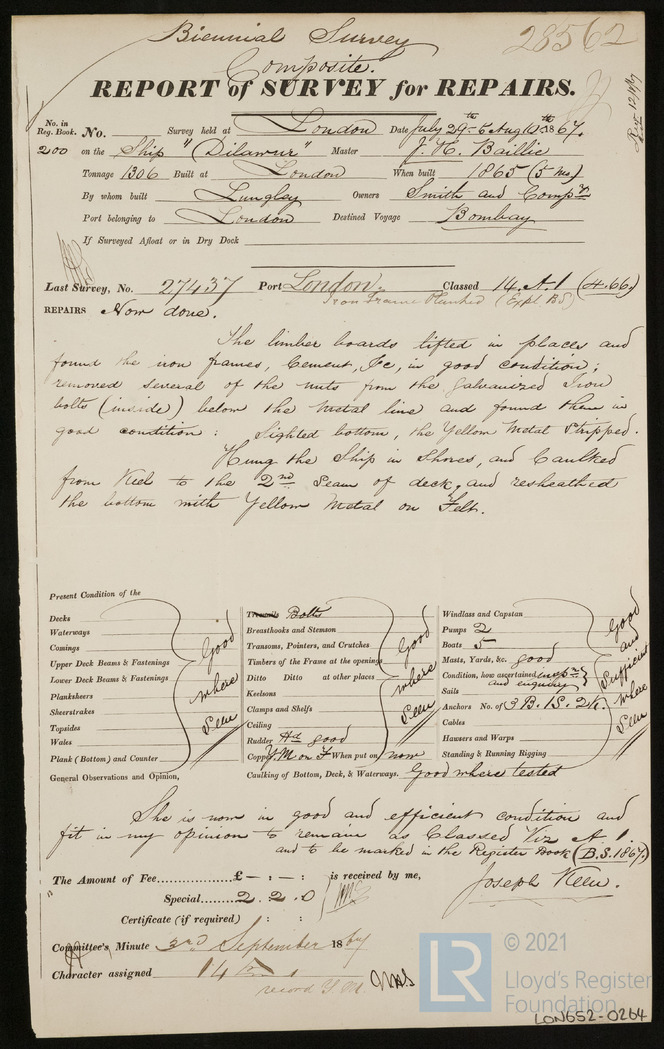 Biennial Survey
28562
Composite.
REPORT of SURVEY for REPAIRS.
No. in Reg. Book. No. Survey held at London Date July 29th to Aug 10th 1867.
200 on the Ship "Dilawur" Master J. H. Baillie
Tonnage 1306 Built at London When built 1865 (5 mo.)
By whom built Langley Owners Smith and Compy
Port belonging to London Destined Voyage Bombay
If Surveyed Afloat or in Dry Dock
Last Survey, No. 27437 Port London. Classed 14. A.1 (4.66.)
Iron Frame Planked (Expl B.S)
REPAIRS Now done.
The limber boards lifted in places and
found the iron frames, Cement, &c, in good condition;
removed several of the nuts from the galvanized Iron
bolts (inside) below the Metal line and found them in
good condition: Sighted bottom, the Yellow Metal stripped.
Hung the Ship in Shores, and Caulked
from Keel to the 2nd Seam of deck, and resheathed
the bottom with Yellow Metal on Felt.
Present Condition of the
Decks
Waterways
Comings
Upper Deck Beams & Fastenings
Lower Deck Beams & Fastenings
Planksheers
Sheerstrakes
Topsides
Wales
Plank (Bottom) and Counter
Good where seen
Treenails Bolts
Breasthooks and Stemson
Transoms, Pointers, and Crutches
Timbers of the Frame at the openings
Ditto Ditto at other places
Keelsons
Clamps and Shelfs
Ceiling
Rudder Hd good
Copper Y.M on F When put on now
Good where seen
Windlass and Capstan
Pumps 2
Boats 5
Masts, Yards, &c. good
Condition, how ascertained inspn and enquiry
Sails
Anchors No. of 3 B. 1 S. 2 K.
Cables
Hawsers and Warps
Standing & Running Rigging
Good and sufficient where seen
General Observations and Opinion, Caulking of Bottom, Deck, & Waterways. Good where tested
She is now in good and efficient condition and
fit in my opinion to remain as Classed Viz A.1.
and to be marked in the Register Book (B.S. 1867.)
The Amount of Fee £ – : – : is received by me,
Special 2. 2. 0
Joseph Keen.
Certificate (if required) : :
Committee's Minute 3rd September 1867
Character assigned 14
record Y.M.
© 2021
LR
Lloyd's Register
Foundation
LON652-0264